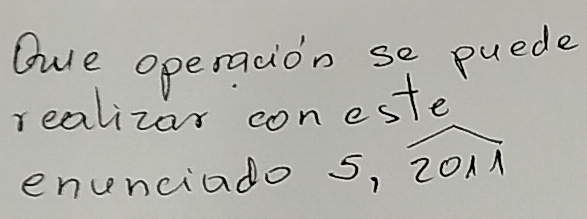 Que operación se puede
realizar con este
enunciado 5, 2011